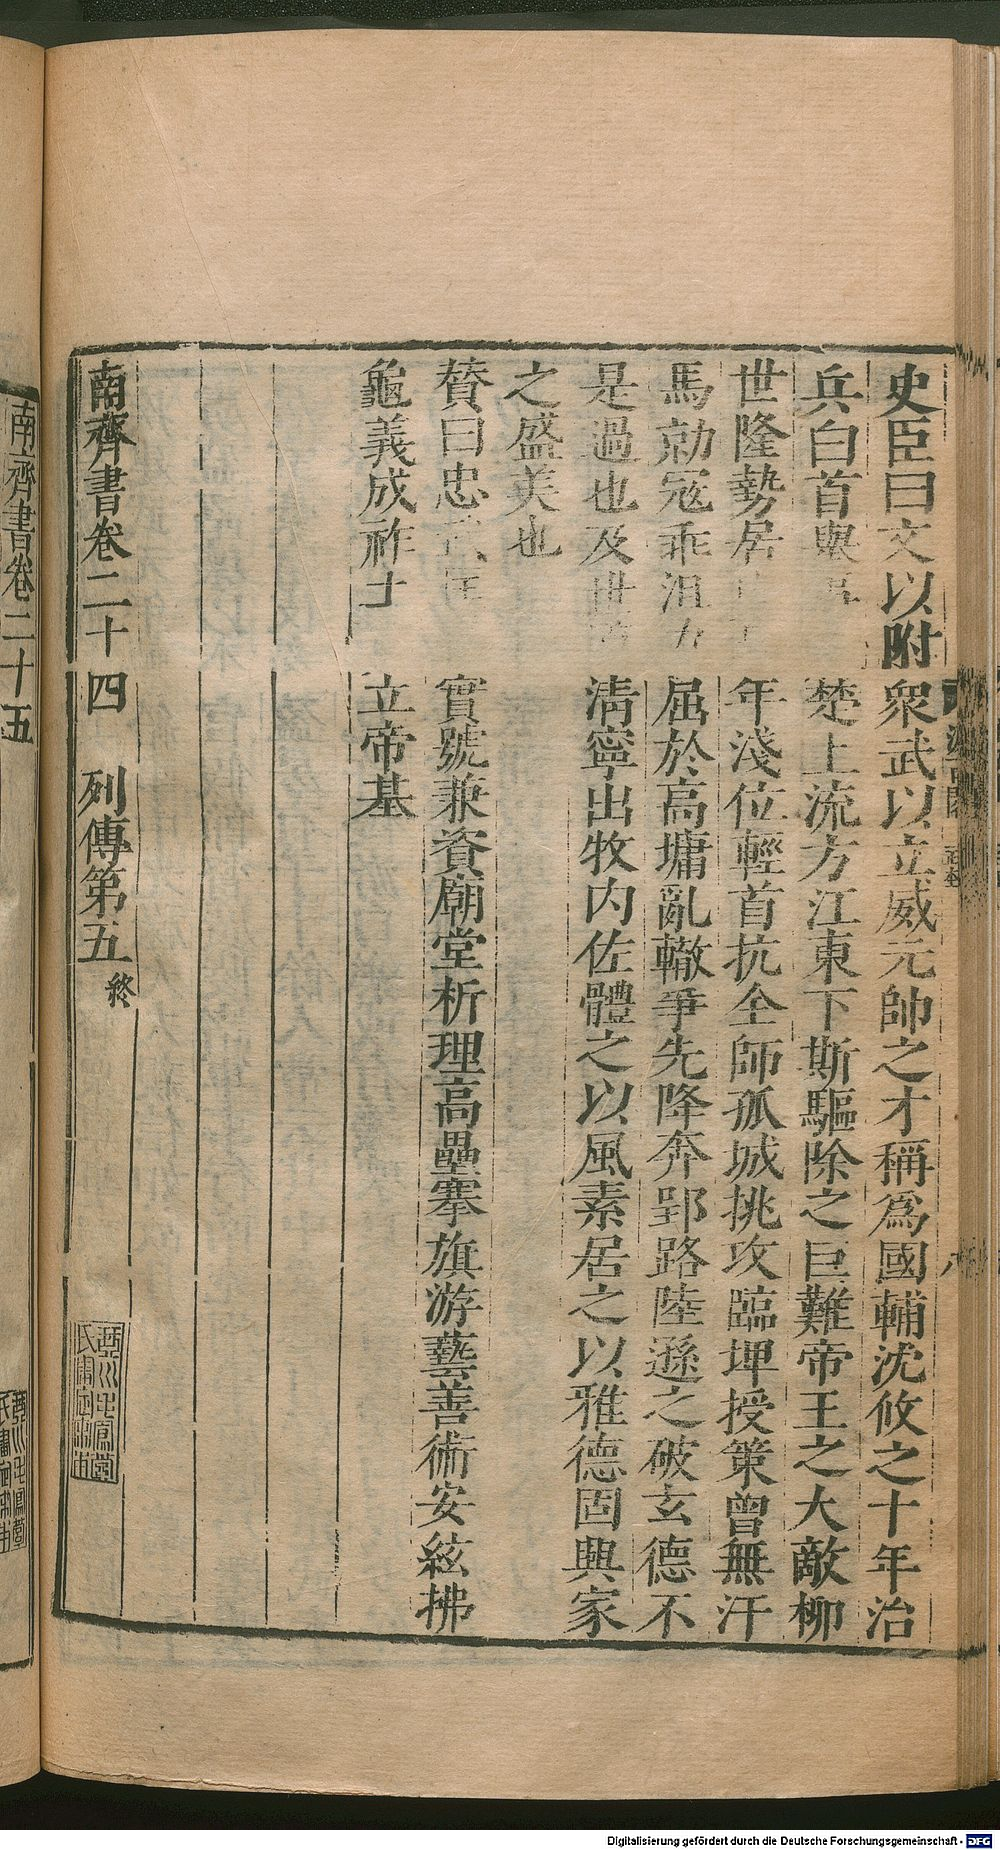 史臣曰文以附衆武以立威元帥之才稱爲國輔沈攸之十年治
兵白首舉楚上流方江東下斯驅除之巨難帝王之大敵柳
世隆勢居年淺位輕首抗全師孤城挑攻臨埤授策曾無汗
馬勍冦乖沮力屈於高墉亂轍爭先降奔郢路陸遜之破玄德不
是過也及世清寧出牧内佐體之以風素居之以雅德固興家
之盛美也
贊曰忠實號兼資廟堂析理高壘搴旗游藝善術安絃拂
龜義成祚土立帝基
南齊書卷二十四 列傳第五 終
南齊書卷二十五
Digitalisierung gefördert durch die Deutsche Forschungsgemeinschaft - DFG